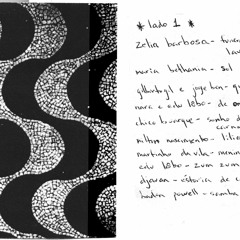 * lado 1 *
zelia barbosa -
maria bethania - sol
gilberto gil e jorge ben -
nara e edu lobo - de
chico buarque - sonho d
milton nascimento - lilia
martinho da vila - menin
edu lobo - zum zum
djavan - estória de c
baden powell - samba